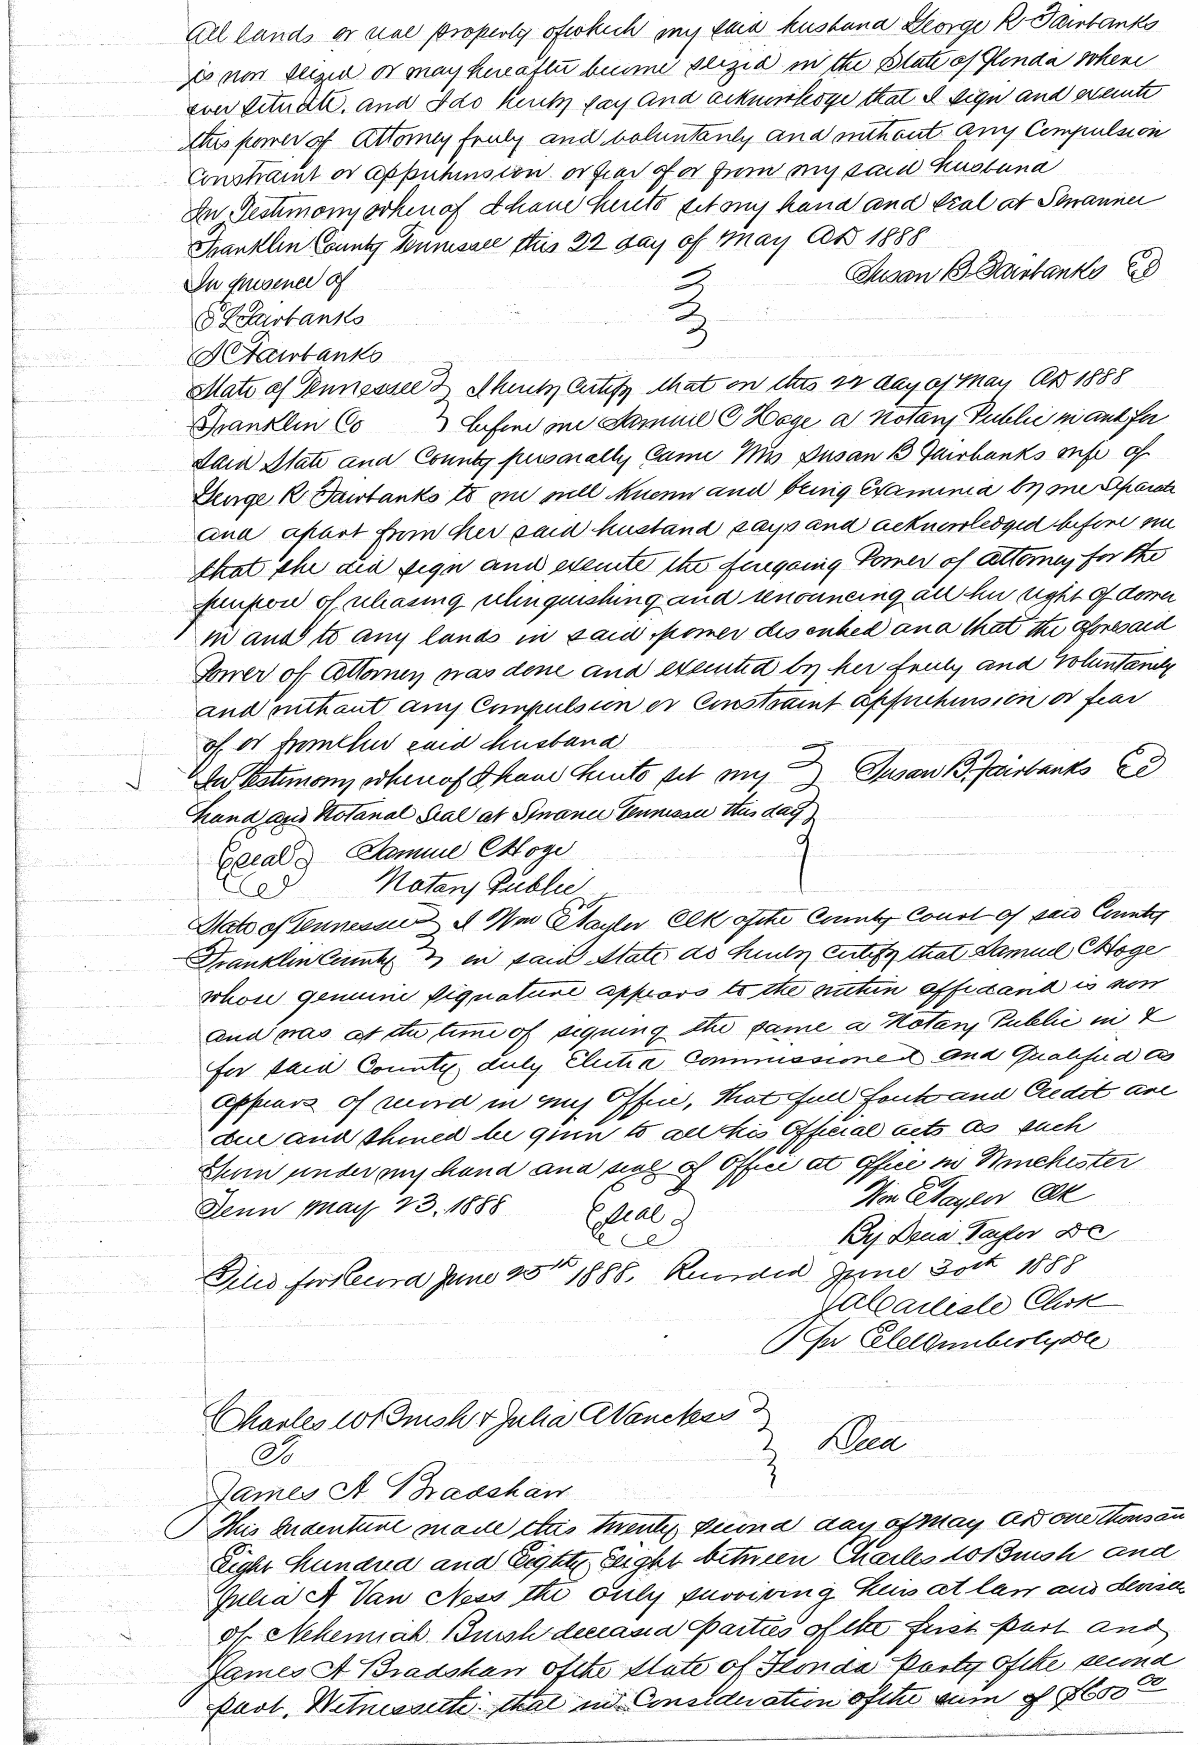 All lands or real property of which my said husband George R Fairbanks
is now seized or may hereafter become seized in the State of Florida where
ever situate. and I do hereby say and acknowledge that I sign and execute
this power of Attorney freely and voluntarily and without any Compulsion
Constraint or apprehension or fear of or from my said husband
In Testimony whereof I have hereto set my hand and seal at Sewannee
Franklin County Tennessee this 22 day of May AD 1888
In presence of
Susan B Fairbanks
Fairbanks
Fairbanks
State of Tennessee } I hereby Certify that on this 22 day of May AD 1888
Franklin Co } before me Samuel C Hoge a Notary Public in and for
said State and County personally Came Mrs Susan B Fairbanks wife of
George R Fairbanks to me well Known and being Examined by me Separate
and apart from her said husband says and acknowledged before me
that she did sign and execute the foregoing Power of Attorney for the
purpose of releasing relinquishing and renouncing all her right of dower
in and to any lands in said power described and that the aforesaid
Power of Attorney was done and executed by her freely and Voluntarily
and without any Compulsion or Constraint apprehension or fear
of or from her said husband
In Testimony whereof I have hereto set my } Susan B. Fairbanks
hand and Notarial Seal at Sewanee Tennessee this day
(Seal) Samuel C Hoge
Notary Public
State of Tennessee } I Wm E Taylor Clk of the County Court of said County
Franklin County } in said State do hereby Certify that Samuel C Hoge
whose genuine signature appears to the within affidavid is now
and was at the time of signing the same a Notary Public in &
for said County duly Elected Commissioned and Qualified as
appears of record in my Office, That full faith and Credit are
due and should be given to all his Official acts as such
Given under my hand and seal of Office at office in Winchester
Tenn May 23. 1888 (Seal) Wm E Taylor Clk
By Taylor DC
Filed for Record June 25th 1888. Recorded June 30th 1888
J A Carlisle Clerk
Per
Charles W Brush & Julia A Vanness }
To } Deed
James A Bradshaw
This Indenture made this twenty second day of May AD one thousan
Eight hundred and Eighty Eight between Charles W Brush and
Julia A Van Ness the only surviving heirs at law and devisees
of Nehemiah Brush deceased parties of the first part and
James A Bradshaw of the State of Florida Party of the second
part. Witnesseth: that in Consideration of the sum of $600 00